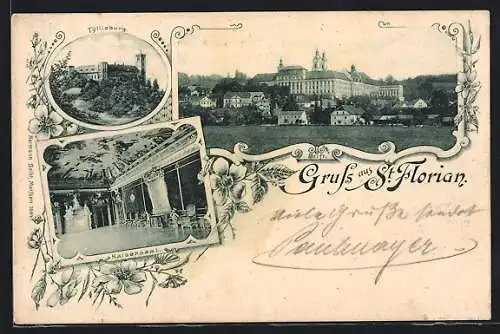 Tyllisburg
Gruß aus St. Florian.
Kaisersaal.
viele Grüße sendet
Paulmayer